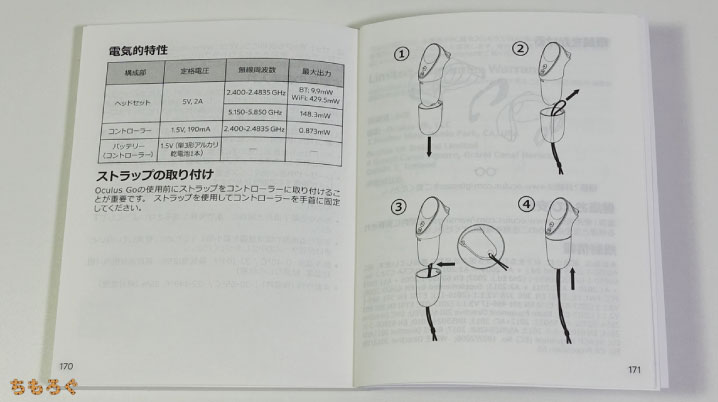 電気的特性
構成部 定格電圧 無線周波数 最大出力
ヘッドセット 5V, 2A 2.400-2.4835 GHz BT: 9.9mW
WiFi: 429.5mW
5.150-5.850 GHz 148.3mW
コントローラー 1.5V, 190mA 2.400-2.4835 GHz 0.873mW
バッテリー
(コントローラー) 1.5V (単3形アルカリ
乾電池1本) — —
ストラップの取り付け
Oculus Goの使用前にストラップをコントローラーに取り付けるこ
とが重要です。 ストラップを使用してコントローラーを手首に固定
してください。
170
① ②
③ ④
171
ちもろぐ